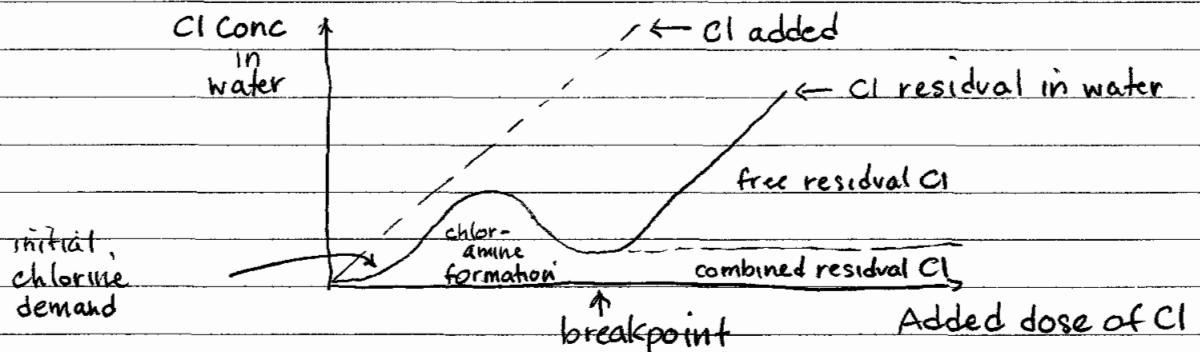 Cl Conc
in
water
← Cl added
← Cl residual in water
free residual Cl
initial
chlorine
demand
chlor-
amine
formation
combined residual Cl
breakpoint
Added dose of Cl